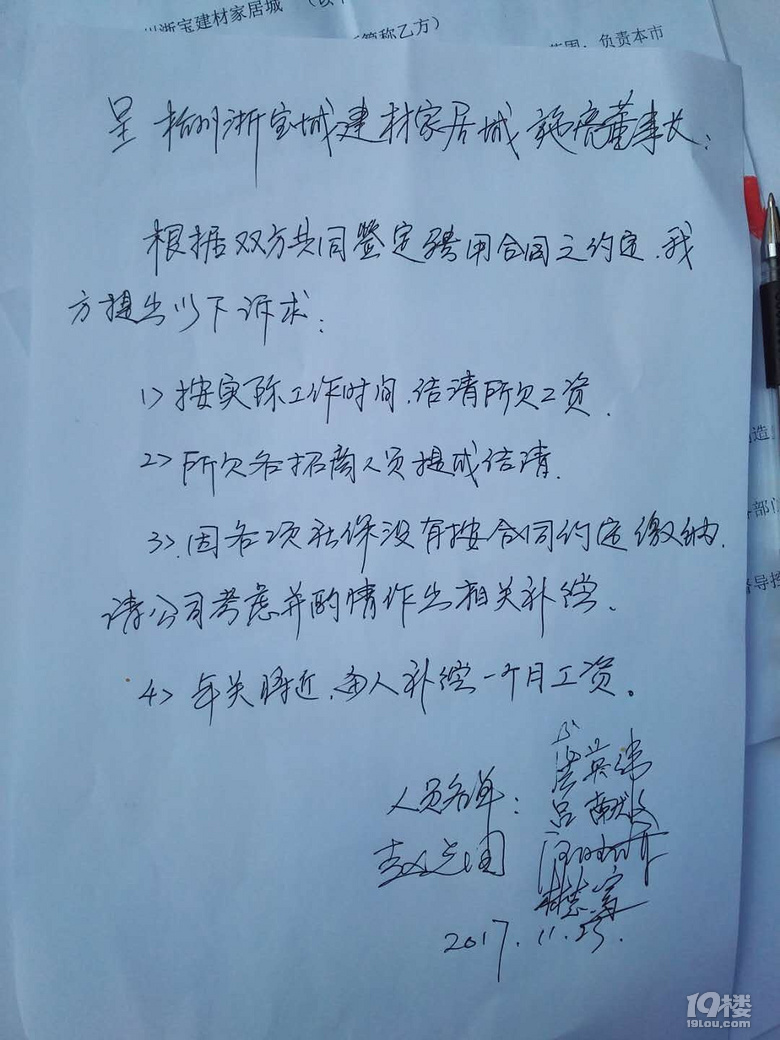 川浙宝建材家居城
简称乙方）
范围：负责本市
呈 杭州浙宝城建材家居城 施亮董事长：
根据双方共同鉴定聘用合同之约定，我
方提出以下诉求：
1> 按实际工作时间，结清所欠工资.
2> 所欠各招商人员提成结清.
3>. 因各项社保没有按合同约定缴纳.
请公司考虑并酌情作出相关补偿.
4> 年关将近，每人补偿一个月工资。
人员名单：
2017.11.25.
造
部门
导
19楼
19lou.com